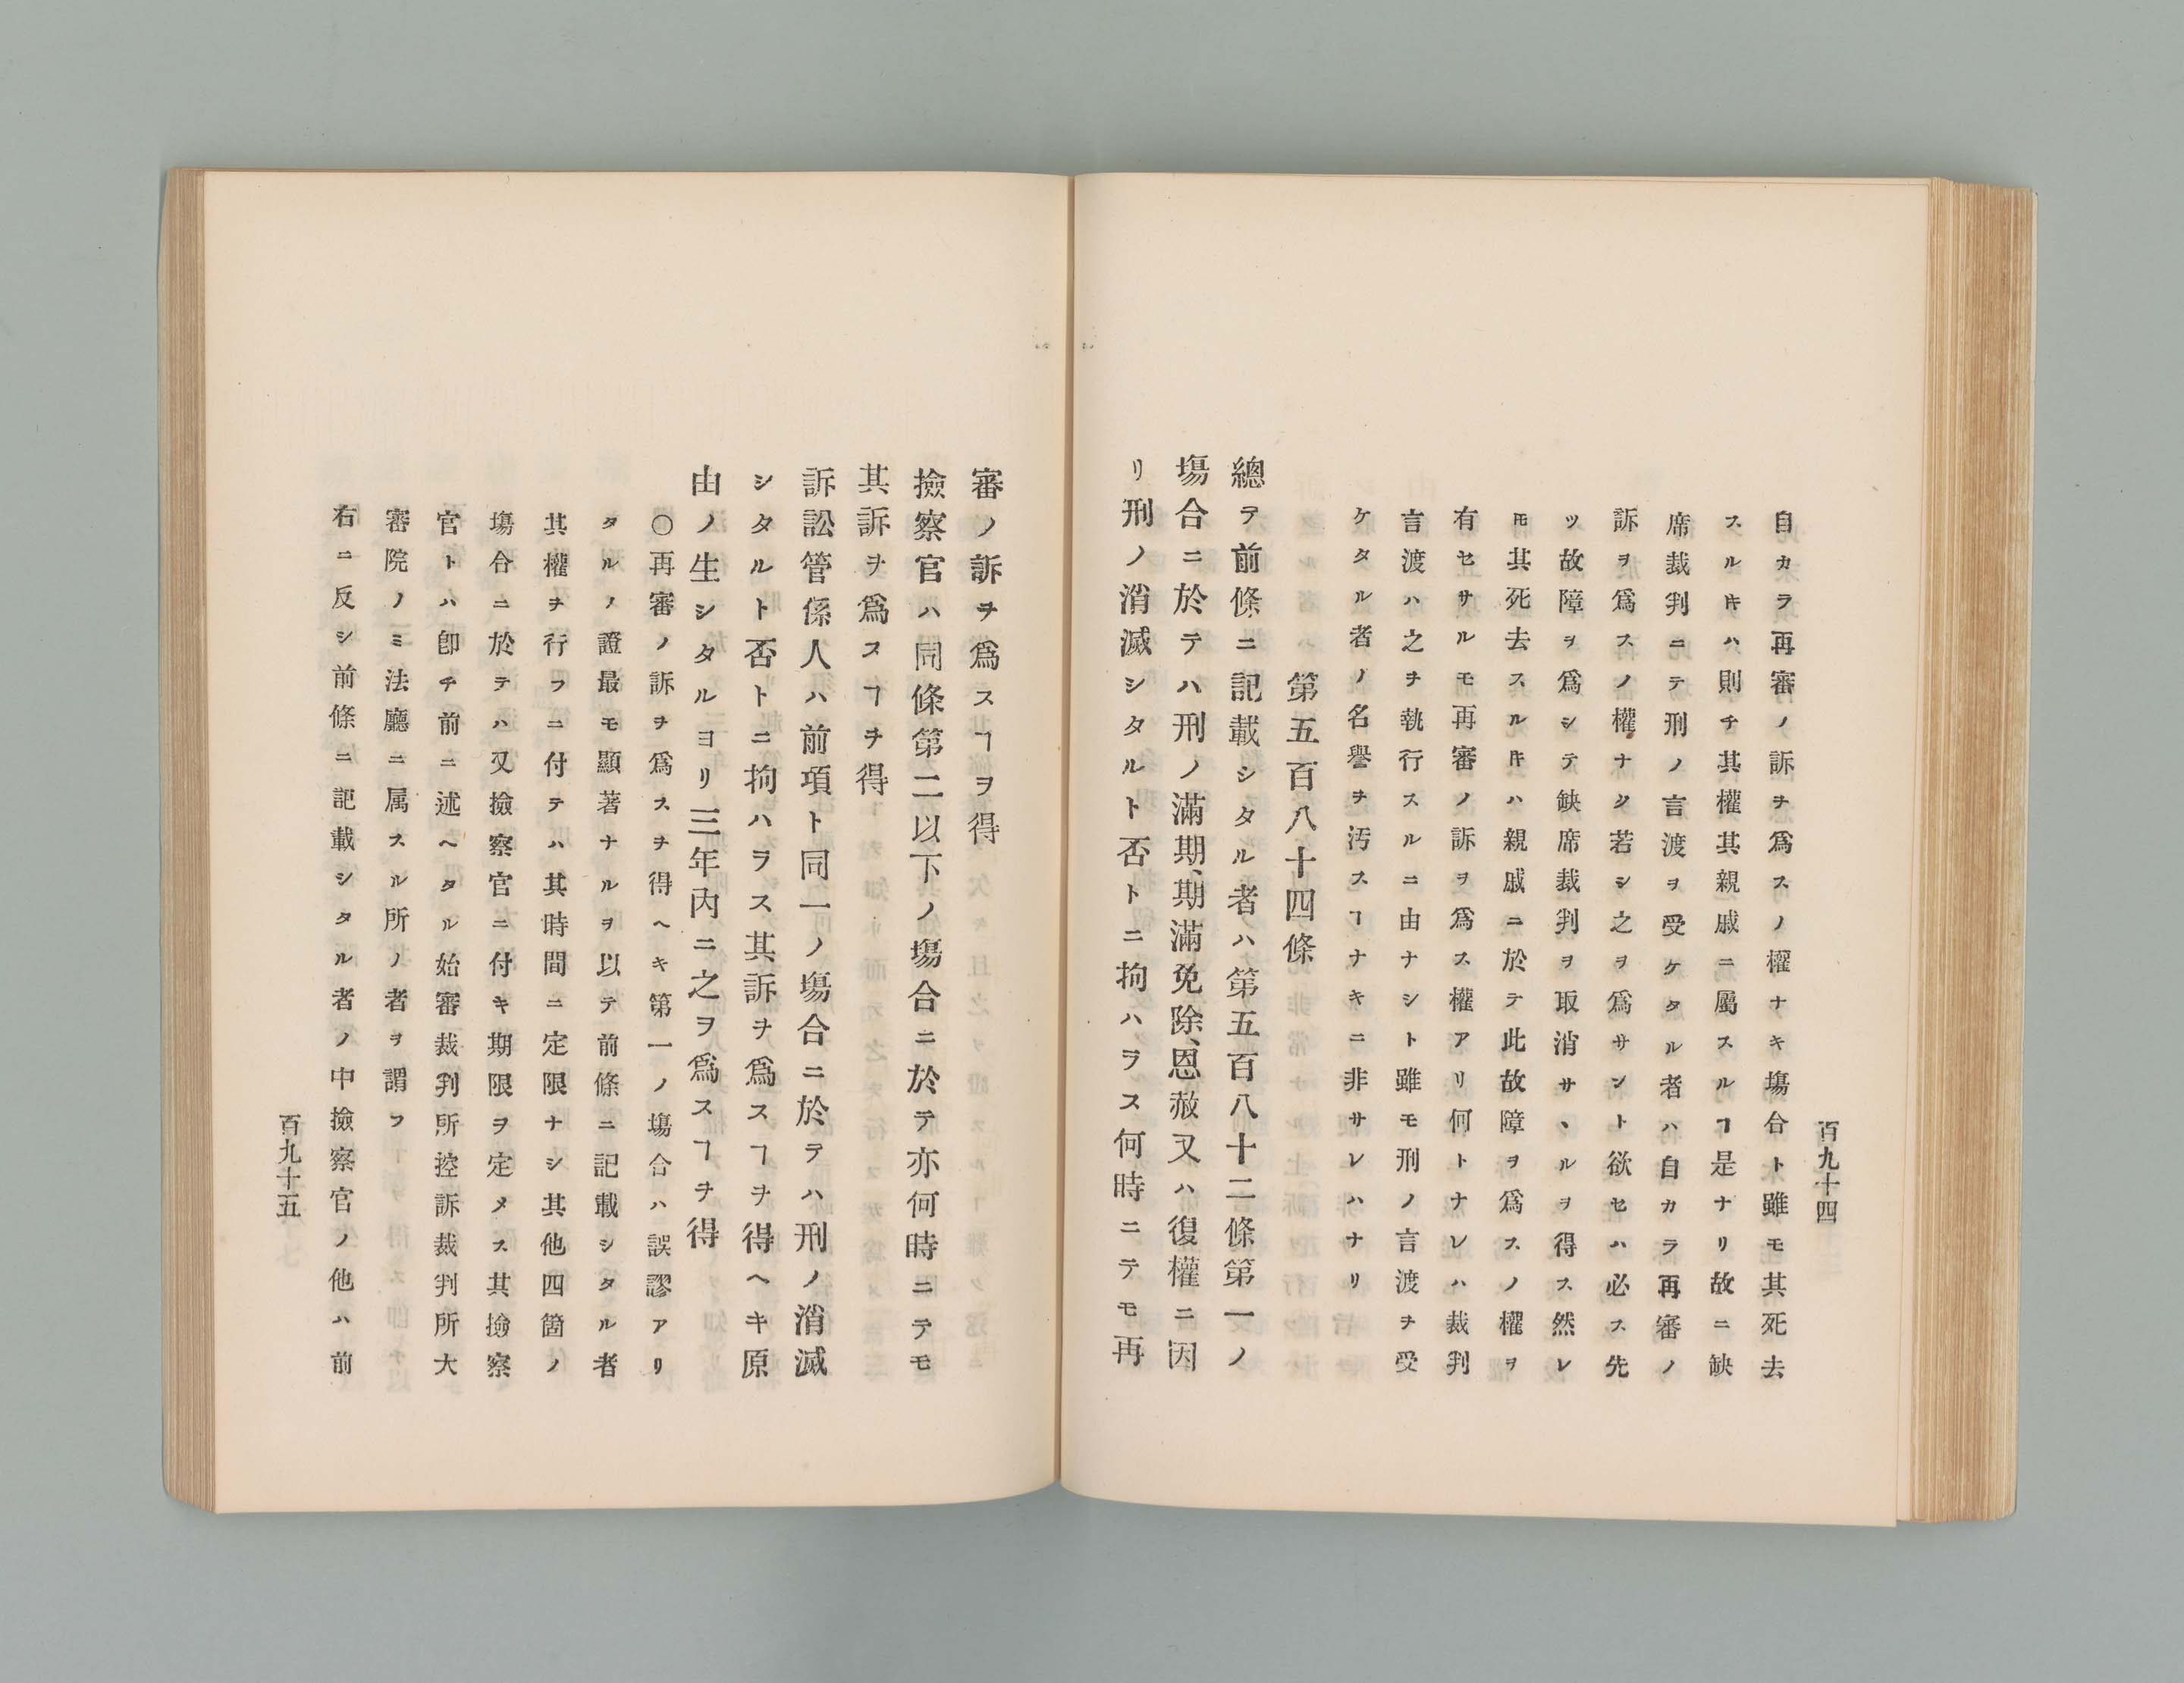 百九十四
自カラ再審ノ訴ヲ爲スノ權ナキ塲合ト雖モ其死去
スルキハ則チ其權其親戚ニ屬スルヿ是ナリ故ニ缺
席裁判ニテ刑ノ言渡ヲ受ケタル者ハ自カラ再審ノ
訴ヲ爲スノ權ナク若シ之ヲ爲サント欲セハ必ス先
ツ故障ヲ爲シテ缺席裁判ヲ取消サヽルヲ得ス然レ
𪜈其死去スルキハ親戚ニ於テ此故障ヲ爲スノ權ヲ
有セサルモ再審ノ訴ヲ爲ス權アリ何トナレハ裁判
言渡ハ之ヲ執行スルニ由ナシト雖モ刑ノ言渡ヲ受
ケタル者ノ名譽ヲ汚スヿナキニ非サレハナリ
第五百八十四條
總テ前條ニ記載シタル者ハ第五百八十二條第一ノ
塲合ニ於テハ刑ノ滿期、期滿免除、恩赦又ハ復權ニ因
リ刑ノ消滅シタルト否トニ拘ハラス何時ニテモ再
審ノ訴ヲ爲スヿヲ得
撿察官ハ同條第二以下ノ塲合ニ於テ亦何時ニテモ
其訴ヲ爲スヿヲ得
訴訟管係人ハ前項ト同一ノ塲合ニ於テハ刑ノ消滅
シタルト否トニ拘ハラス其訴ヲ爲スヿヲ得ヘキ原
由ノ生シタルヨリ三年内ニ之ヲ爲スヿヲ得
○再審ノ訴ヲ爲スヲ得ヘキ第一ノ塲合ハ誤謬アリ
タルノ證最モ顯著ナルヲ以テ前條ニ記載シタル者
其權ヲ行フニ付テハ其時間ニ定限ナシ其他四箇ノ
塲合ニ於テハ又撿察官ニ付キ期限ヲ定メス其撿察
官トハ卽チ前ニ述ヘタル始審裁判所控訴裁判所大
審院ノミ法廳ニ属スル所ノ者ヲ謂フ
右ニ反シ前條ニ記載シタル者ノ中撿察官ノ他ハ前
百九十五